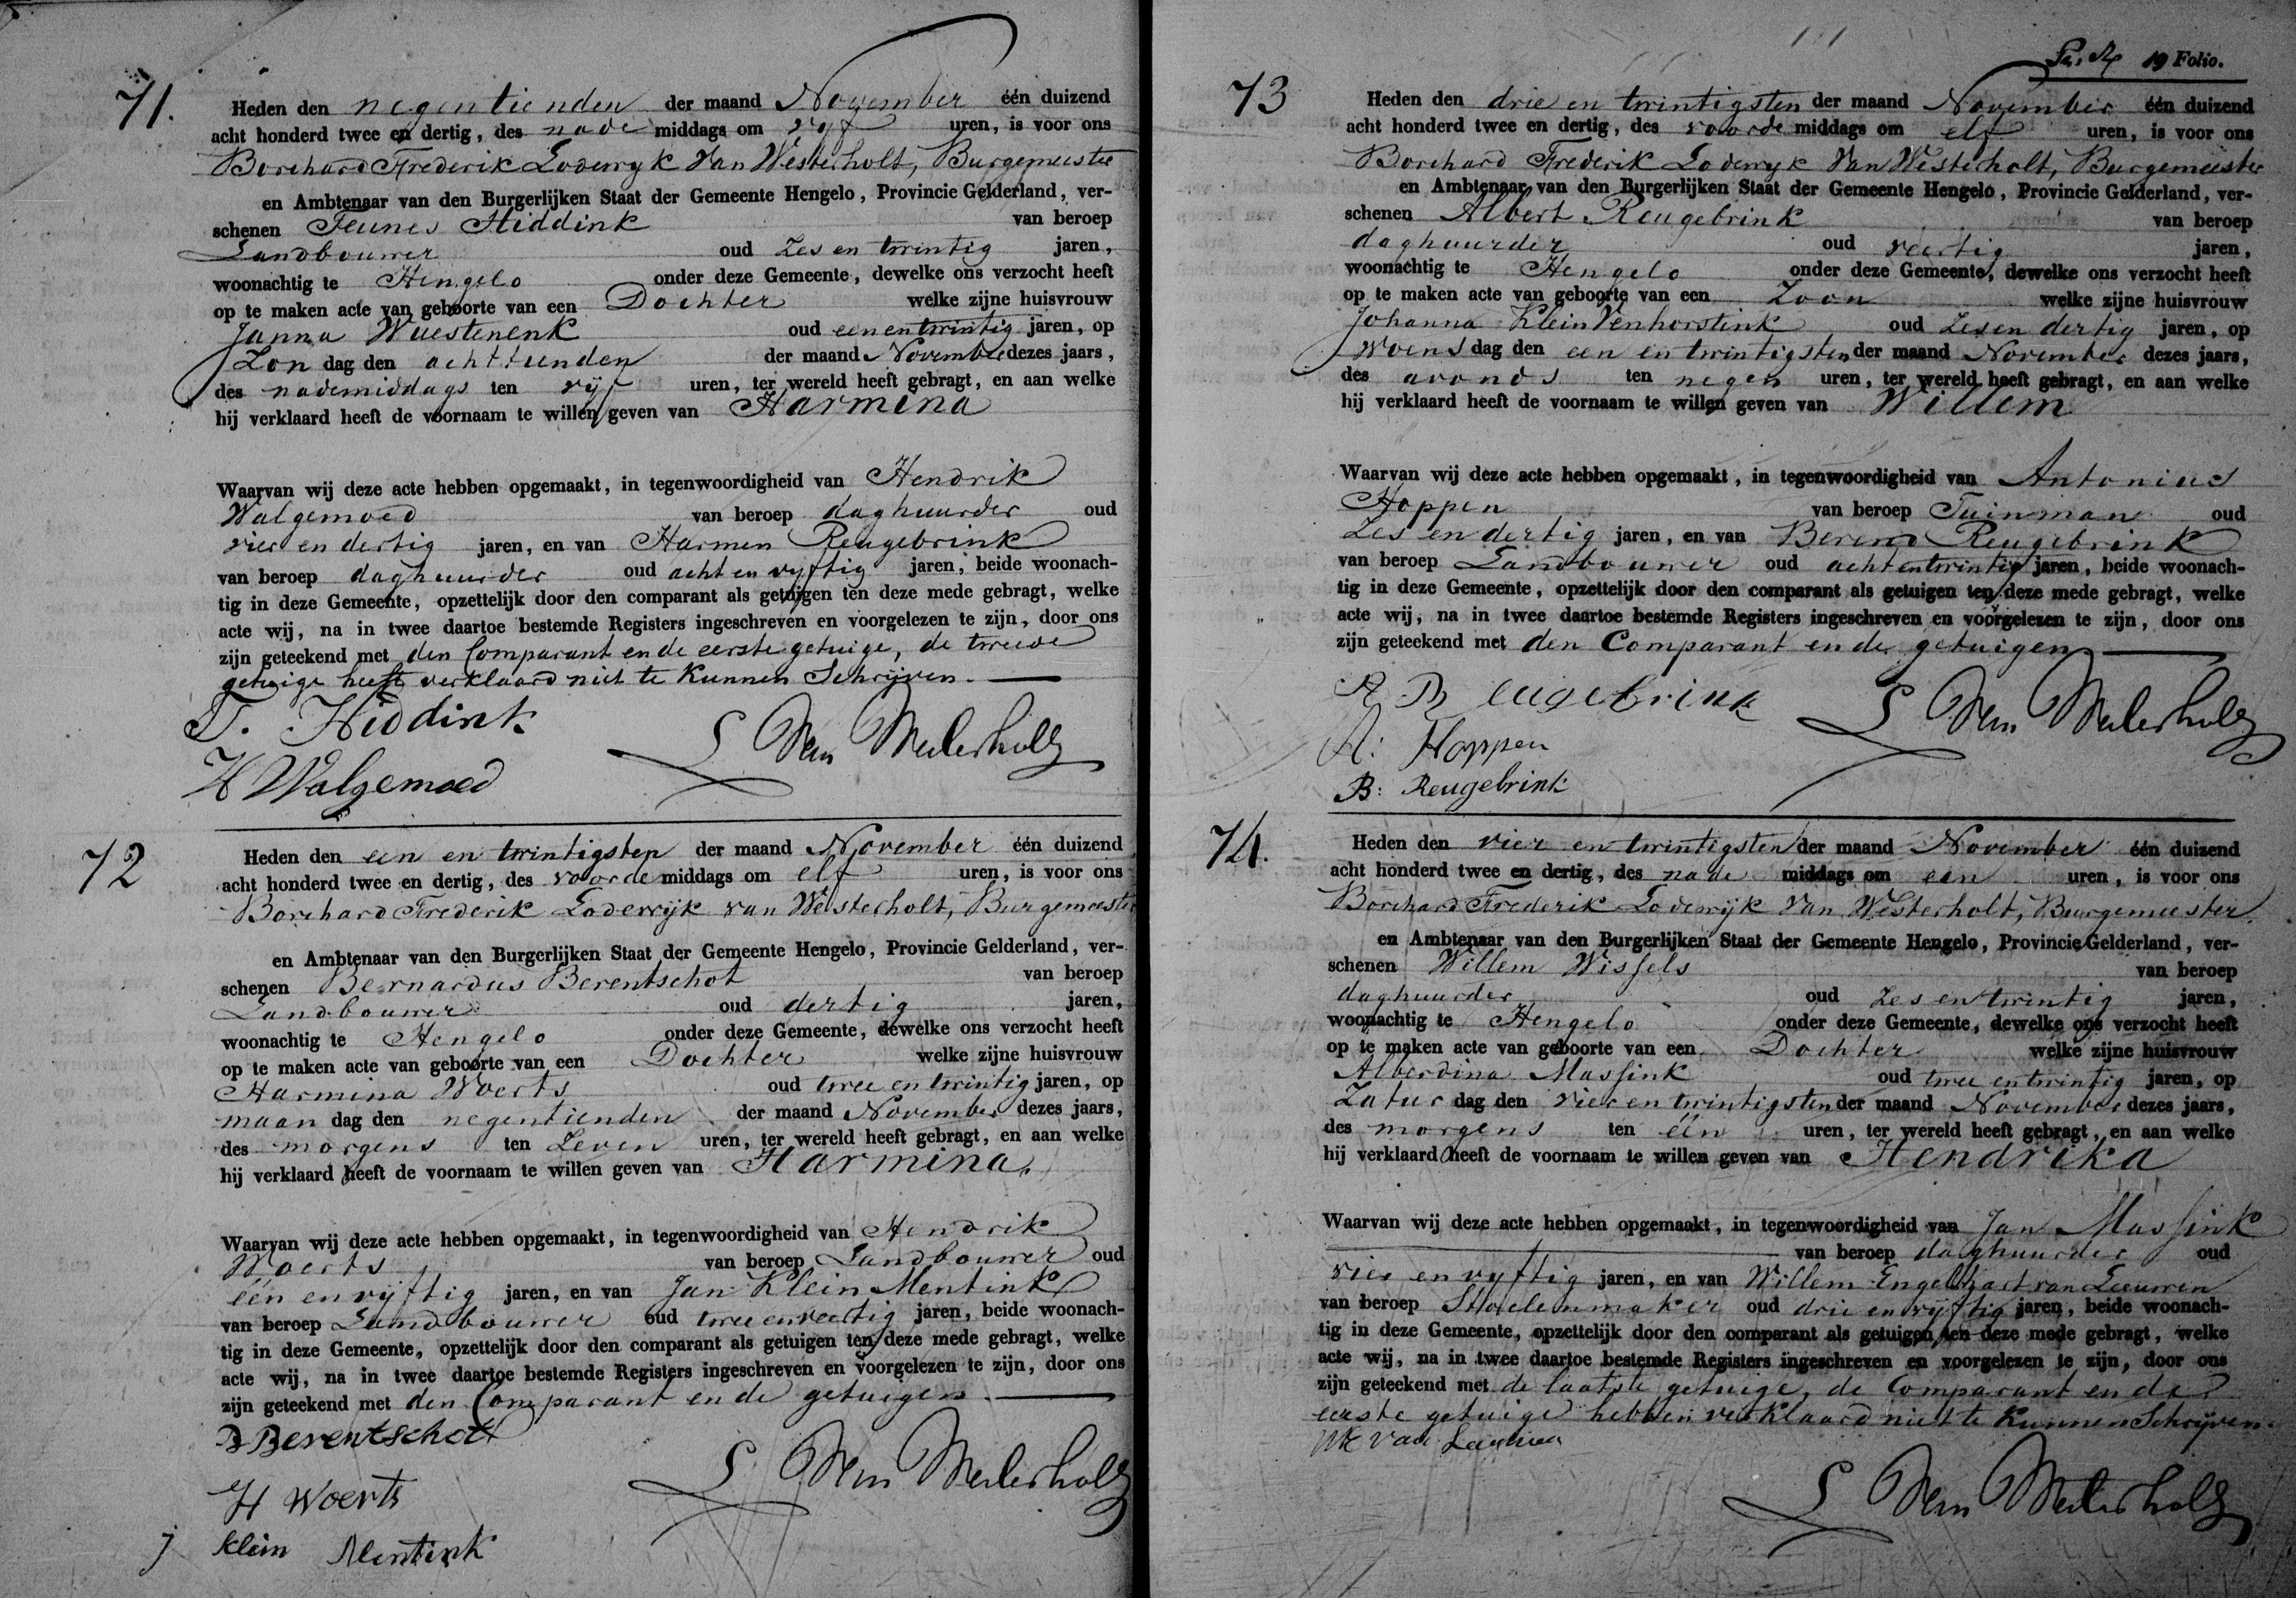 71.
Heden den negentienden der maand November één duizend
acht honderd twee en dertig, des nade middags om vyf uren, is voor ons
Borchard Frederik Lodewyk Van Westerholt, Burgemeester
en Ambtenaar van den Burgerlijken Staat der Gemeente Hengelo, Provincie Gelderland, ver-
schenen Teunes Hiddink van beroep
Landbouwer oud Zes en twintig jaren,
woonachtig te Hengelo onder deze Gemeente, dewelke ons verzocht heeft
op te maken acte van geboorte van een Dochter welke zijne huisvrouw
Janna Waestenenk oud een en twintig jaren, op
Zon dag den achttienden der maand November dezes jaars,
des nademiddags ten vijf uren, ter wereld heeft gebragt, en aan welke
hij verklaard heeft de voornaam te willen geven van Harmina
Waarvan wij deze acte hebben opgemaakt, in tegenwoordigheid van Hendrik
Walgemoed van beroep daghuurder oud
vier en dertig jaren, en van Harmen Reugebrink
van beroep daghuurder oud acht en vyftig jaren, beide woonach-
tig in deze Gemeente, opzettelijk door den comparant als getuigen ten deze mede gebragt, welke
acte wij, na in twee daartoe bestemde Registers ingeschreven en voorgelezen te zijn, door ons
zijn geteekend met den Comparant en de eerste getuige, de tweede
getuige heeft verklaard niet te Kunnen Schrijven.
T. Hiddink
H Walgemoed
L Van Westerholt
72
Heden den een en twintigsten der maand November één duizend
acht honderd twee en dertig, des voorde middags om elf uren, is voor ons
Borchard Frederik Lodewijk van Westerholt, Burgemeester
en Ambtenaar van den Burgerlijken Staat der Gemeente Hengelo, Provincie Gelderland, ver-
schenen Bernardus Berentschot van beroep
Landbouwer oud dertig jaren,
woonachtig te Hengelo onder deze Gemeente, dewelke ons verzocht heeft
op te maken acte van geboorte van een Dochter welke zijne huisvrouw
Harmina Woerts oud twee en twintig jaren, op
maan dag den negentienden der maand November dezes jaars,
des morgens ten Zeven uren, ter wereld heeft gebragt, en aan welke
hij verklaard heeft de voornaam te willen geven van Harmina.
Waarvan wij deze acte hebben opgemaakt, in tegenwoordigheid van Hendrik
Woerts van beroep Landbouwer oud
één en vijftig jaren, en van Jan Klein Mentink
van beroep Landbouwer oud twee en veertig jaren, beide woonach-
tig in deze Gemeente, opzettelijk door den comparant als getuigen ten deze mede gebragt, welke
acte wij, na in twee daartoe bestemde Registers ingeschreven en voorgelezen te zijn, door ons
zijn geteekend met den Comparant en de getuigen
B Berentschot
H Woerts
j klein Mentink
L Van Westerholt
19 Folio.
73
Heden den drie en twintigsten der maand November één duizend
acht honderd twee en dertig, des voorde middags om elf uren, is voor ons
Borchard Frederik Lodewyk Van Westerholt, Burgemeester
en Ambtenaar van den Burgerlijken Staat der Gemeente Hengelo, Provincie Gelderland, ver-
schenen Albert Reugebrink van beroep
daghuurder oud veertig jaren,
woonachtig te Hengelo onder deze Gemeente, dewelke ons verzocht heeft
op te maken acte van geboorte van een Zoon welke zijne huisvrouw
Johanna Klein Venhorstink oud Zes en dertig jaren, op
Woens dag den een en twintigsten der maand November dezes jaars,
des avonds ten negen uren, ter wereld heeft gebragt, en aan welke
hij verklaard heeft de voornaam te willen geven van Willem
Waarvan wij deze acte hebben opgemaakt, in tegenwoordigheid van Antonius
Hoppen van beroep Tuinman oud
Zes en dertig jaren, en van Berend Reugebrink
van beroep Landbouwer oud acht en twintig jaren, beide woonach-
tig in deze Gemeente, opzettelijk door den comparant als getuigen ten deze mede gebragt, welke
acte wij, na in twee daartoe bestemde Registers ingeschreven en voorgelezen te zijn, door ons
zijn geteekend met den Comparant en de getuigen
A Reugebrink
A: Hoppen
B: Reugebrink
L Van Westerholt
74.
Heden den vier en twintigsten der maand November één duizend
acht honderd twee en dertig, des nade middags om een uren, is voor ons
Borchard Frederik Lodewijk Van Westerholt, Burgemeester
en Ambtenaar van den Burgerlijken Staat der Gemeente Hengelo, Provincie Gelderland, ver-
schenen Willem Wissels van beroep
daghuurder oud Zes en twintig jaren,
woonachtig te Hengelo onder deze Gemeente, dewelke ons verzocht heeft
op te maken acte van geboorte van een Dochter welke zijne huisvrouw
Alberdina Massink oud twee en twintig jaren, op
Zatur dag den vier en twintigsten der maand November dezes jaars,
des morgens ten één uren, ter wereld heeft gebragt, en aan welke
hij verklaard heeft de voornaam te willen geven van Hendrika
Waarvan wij deze acte hebben opgemaakt, in tegenwoordigheid van Jan Massink
van beroep daghuurder oud
vier en vyftig jaren, en van Willem Engelhart van Leeuwen
van beroep Stoelenmaker oud drie en vyftig jaren, beide woonach-
tig in deze Gemeente, opzettelijk door den comparant als getuigen ten deze mede gebragt, welke
acte wij, na in twee daartoe bestemde Registers ingeschreven en voorgelezen te zijn, door ons
zijn geteekend met de laatste getuige, de Comparant en de
eerste getuige hebben verklaard niet te Kunnen Schrijven.
van Leeuwen
L Van Westerholt